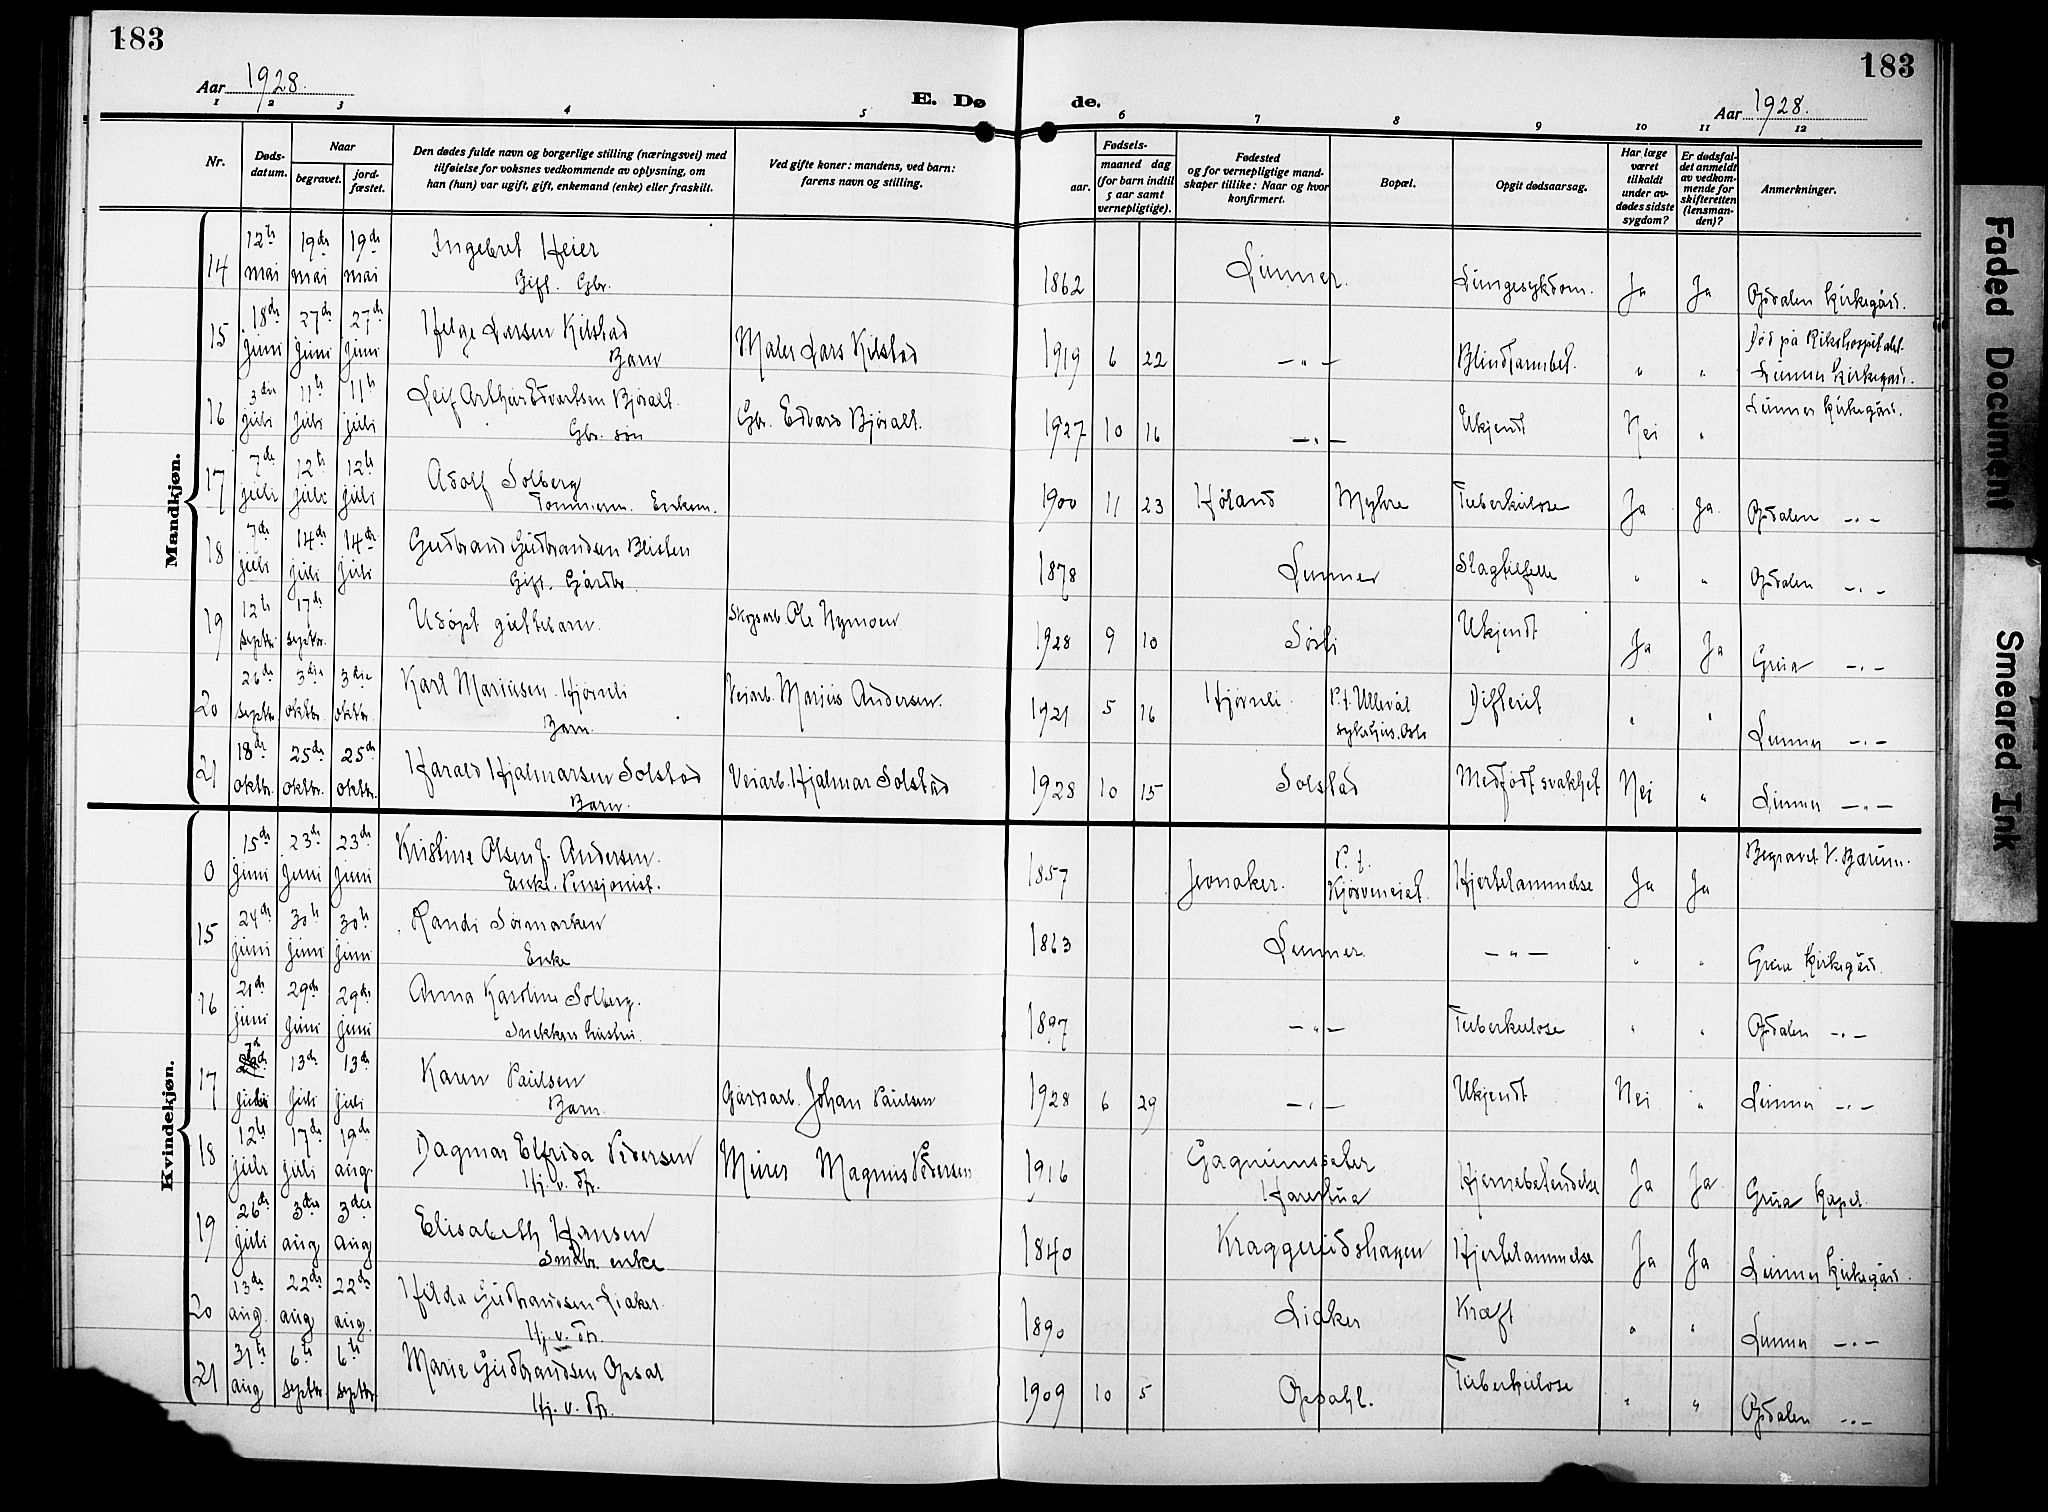 183
183
Aar 1928.
E. Dø de.
Aar 1928.
1 2 3 4 5 6 7 8 9 10 11 12
Nr.
Døds-
datum.
Naar
begravet.
jord-
fæstet.
Den dødes fulde navn og borgerlige stilling (næringsvei) med
tilføielse for voksnes vedkommende av oplysning, om
han (hun) var ugift, gift, enkemand (enke) eller fraskilt.
Ved gifte koner: mandens, ved barn:
farens navn og stilling.
Fødsels-
aar.
maaned dag
(for barn indtil
5 aar samt
vernepligtige).
Fødested
og for vernepligtige mand-
skaper tillike: Naar og hvor
konfirmert.
Bopæl.
Opgit dødsaarsag.
Har læge
været
tilkaldt
under av-
dødes sidste
sygdom?
Er dødsfal-
det anmeldt
av vedkom-
mende for
skifteretten
(lensman-
den)?
Anmerkninger.
Mandkjøn.
14 12te mai 19de mai 19de mai Ingebret Heier 1862 Lunner. Lungesykdom. Ja Ja Opdalen kirkegård.
Gift. Gbr.
15 18de juni 27de juni 27de juni Helge Larsen Kilstad Maler Lars Kilstad 1919 6 22 — " — Blindtarmbet. " " Død på Rikshospitalet.
Barn Lunner kirkegård.
16 3die juli 11te juli 11te juli Leif Arthur Edvartsen Bjøralt. Gbr. Edvard Bjøralt. 1927 10 16 — " — Ukjendt Nei " Lunner kirkegård.
Gbr. søn
17 7de juli 12te juli 12te juli Adolf Solberg 1900 11 23 Høland Myhre Tuberkulose Ja Ja Opdalen — " —
Tømmerm. Enkem.
18 7de juli 14de juli 14de juli Gudbrand Gudbrandsen Blisten 1878 Lunner Slagtilfelle " " Opdalen — " —
Gift. Gårdbr.
19 12te septbr. 17de septbr. Udøpt guttebarn. Skogsarb. Ole Nymoen 1928 9 10 Sørli Ukjendt Ja Ja Grua — " —
20 26de septbr. 3die oktbr. 3die oktbr. Karl Mariusen Hjørnli Veiarb. Marius Andersen. 1921 5 16 Hjørnli. P.t. Ullevål Difterit " " Lunner — " —
Barn. sykehus. Oslo
21 18de oktbr. 25de oktbr. 25de oktbr. Harald Hjalmarsen Solstad Veiarb. Hjalmar Solstad 1928 10 15 Solstad Medfødt svakhet Nei " Lunner — " —
Barn.
Kvindekjøn.
0 15de juni 23de juni 23de juni Kristine Olsen f. Andersen. 1857 Jevnaker. P.t. Hjertelammelse Ja Ja Begravet V. Bærum.
Enke. Pensjonist.
15 24de juni 30te juni 30te juni Randi Sørmarken 1863 Lunner. — " — " " Grua kirkegård.
Enke
16 21de juni 29de juni 29de juni Anna Karoline Solberg. 1897 — " — Tuberkulose " " Opdalen — " —
Snekkers hustru.
17 7de juli 13de juli 13de juli Karen Paulsen Gårdsarb. Johan Paulsen 1928 6 29 — " — Ukjendt Nei " Lunner — " —
Barn.
18 12te juli 17de juli 19de aug. Dagmar Elfrida Pedersen Murer Magnus Pedersen 1916 Gagnumsseter Hjernebetendelse Ja Ja Grua Kapel.
Hj. v. Dtr. Harestua
19 26de juli 3die aug 3die aug Elisabeth Hansen 1840 Kraggerudshagen Hjertelammelse Ja Ja Lunner kirkegård.
Småbr. enke
20 13de aug. 22de aug 22de aug. Hilda Gudbrandsen Liaker. 1890 Liaker Kræft " " Lunner — " —
Hj. v. Dtr.
21 31te aug 6te septbr. 6te septbr. Marie Gudbrandsen Opsal 1909 10 5 Opsahl. Tuberkulose " " Opdalen — " —
Hj. v. Dtr.
Faded Document
Smeared Ink